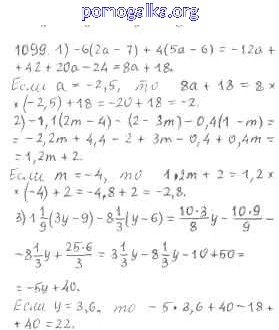 pomogalka.org
1099. 1) -6(2a - 7) + 4(5a - 6) = -12a +
+ 42 + 20a - 24 = 8a + 18.
Если a = -2,5, то 8a + 18 = 8 ×
× (-2,5) + 18 = -20 + 18 = -2.
2) -1,1(2m - 4) - (2 - 3m) - 0,4(1 - m) =
= -2,2m + 4,4 - 2 + 3m - 0,4 + 0,4m =
= 1,2m + 2.
Если m = -4, то 1,2m + 2 = 1,2 ×
× (-4) + 2 = -4,8 + 2 = -2,8.
3) 1 1/9 (3y - 9) - 8 1/3 (y - 6) = 10·3/8 y - 10·9/9 -
- 8 1/3 y + 25·6/3 = 3 1/3 y - 8 1/3 y - 10 + 50 =
= -5y + 40.
Если y = 3,6, то -5 · 3,6 + 40 = -18 +
+ 40 = 22.